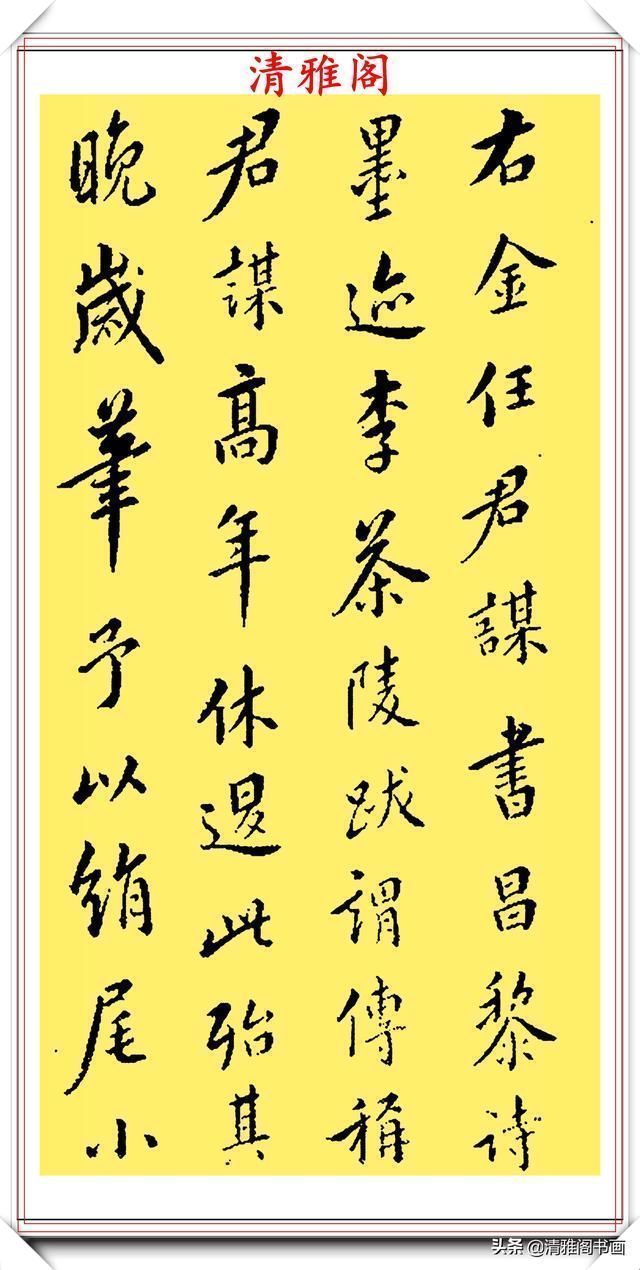 清雅阁
右金任君謀書昌黎诗
墨迹李茶陵跋謂傳稱
君謀高年休退此殆其
晚歲筆予以絹尾小
头条@清雅阁书画